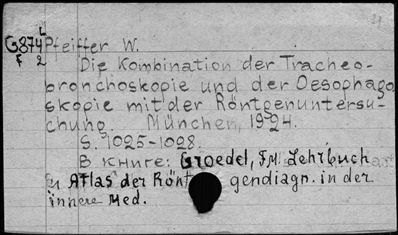 G874L Pfeiffer W.
F 2
Die Kombination der Tracheo-
bronchoskopie und der Oesophago
skopie mit der Röntgenuntersu-
chung. München, 1924.
S. 1025-1028.
В книге: Groedel, F.M. Lehrbuch
u Atlas der Rönt gendiagn. in der
innere Med.